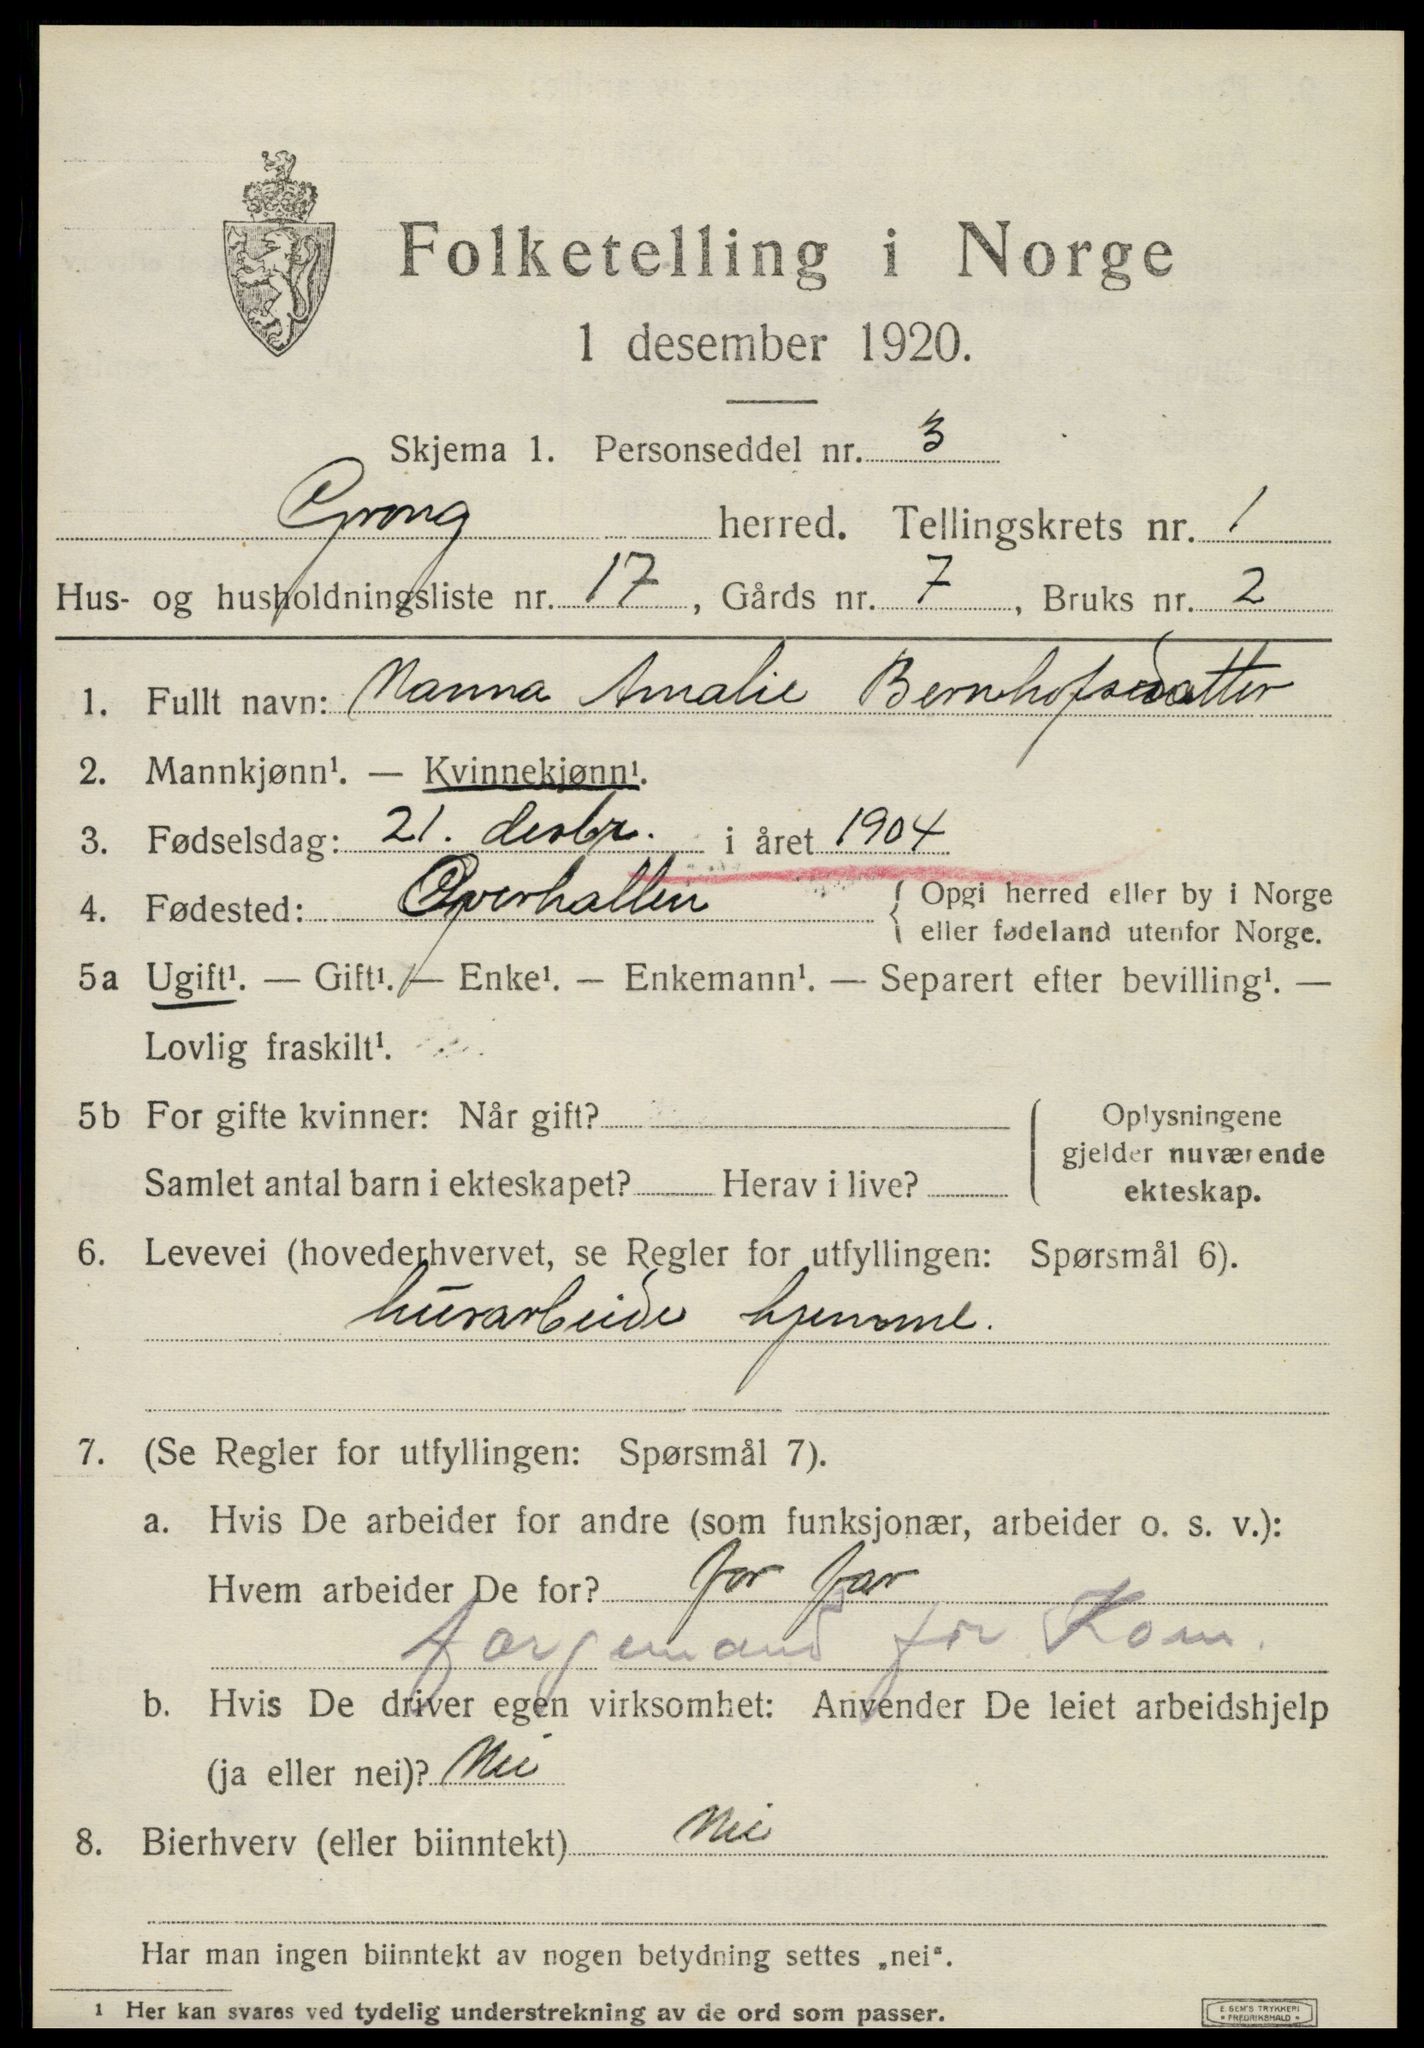 Folketelling i Norge
1 desember 1920.
Skjema 1. Personseddel nr. 3
Grong herred. Tellingskrets nr. 1
Hus- og husholdningsliste nr. 17, Gårds nr. 7, Bruks nr. 2
1. Fullt navn: Nanna Amalie Bernhofsdatter
2. Mannkjønn¹. — Kvinnekjønn¹.
3. Fødselsdag: 21. desbr. i året 1904
4. Fødested: Overhallen { Opgi herred eller by i Norge
eller fødeland utenfor Norge.
5a Ugift¹. — Gift¹. — Enke¹. — Enkemann¹. — Separert efter bevilling¹. —
Lovlig fraskilt¹.
5b For gifte kvinner: Når gift? { Oplysningene
gjelder nuværende
Samlet antal barn i ekteskapet? Herav i live?
ekteskap.
6. Levevei (hovederhvervet, se Regler for utfyllingen: Spørsmål 6).
husarbeide hjemme.
7. (Se Regler for utfyllingen: Spørsmål 7).
a. Hvis De arbeider for andre (som funksjonær, arbeider o. s. v.):
Hvem arbeider De for? for far
for Kom.
b. Hvis De driver egen virksomhet: Anvender De leiet arbeidshjelp
(ja eller nei)? Nei
8. Bierhverv (eller biinntekt) Nei
Har man ingen biinntekt av nogen betydning settes „nei“.
¹ Her kan svares ved tydelig understrekning av de ord som passer.
E. SEM'S TRYKKERI
* FREDRIKSHALD *